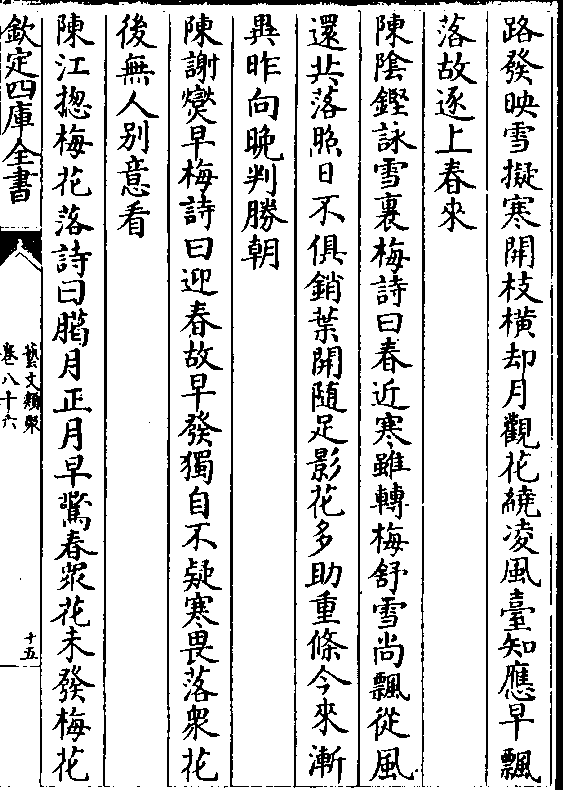 路發映雪擬寒開枝橫却月觀花繞凌風臺知應早飄
落故逐上春來
陳陰鏗詠雪裏梅詩曰春近寒雖轉梅舒雪尚飄從風
還共落照日不俱銷葉開隨足影花多助重條今來漸
異昨向晚判勝朝
陳謝爕早梅詩曰迎春故早發獨自不疑寒畏落衆花
後無人别意看
陳江揔梅花落詩曰臈月正月早驚春衆花未發梅花
欽定四庫全書
藝文類聚
卷八十六
十五